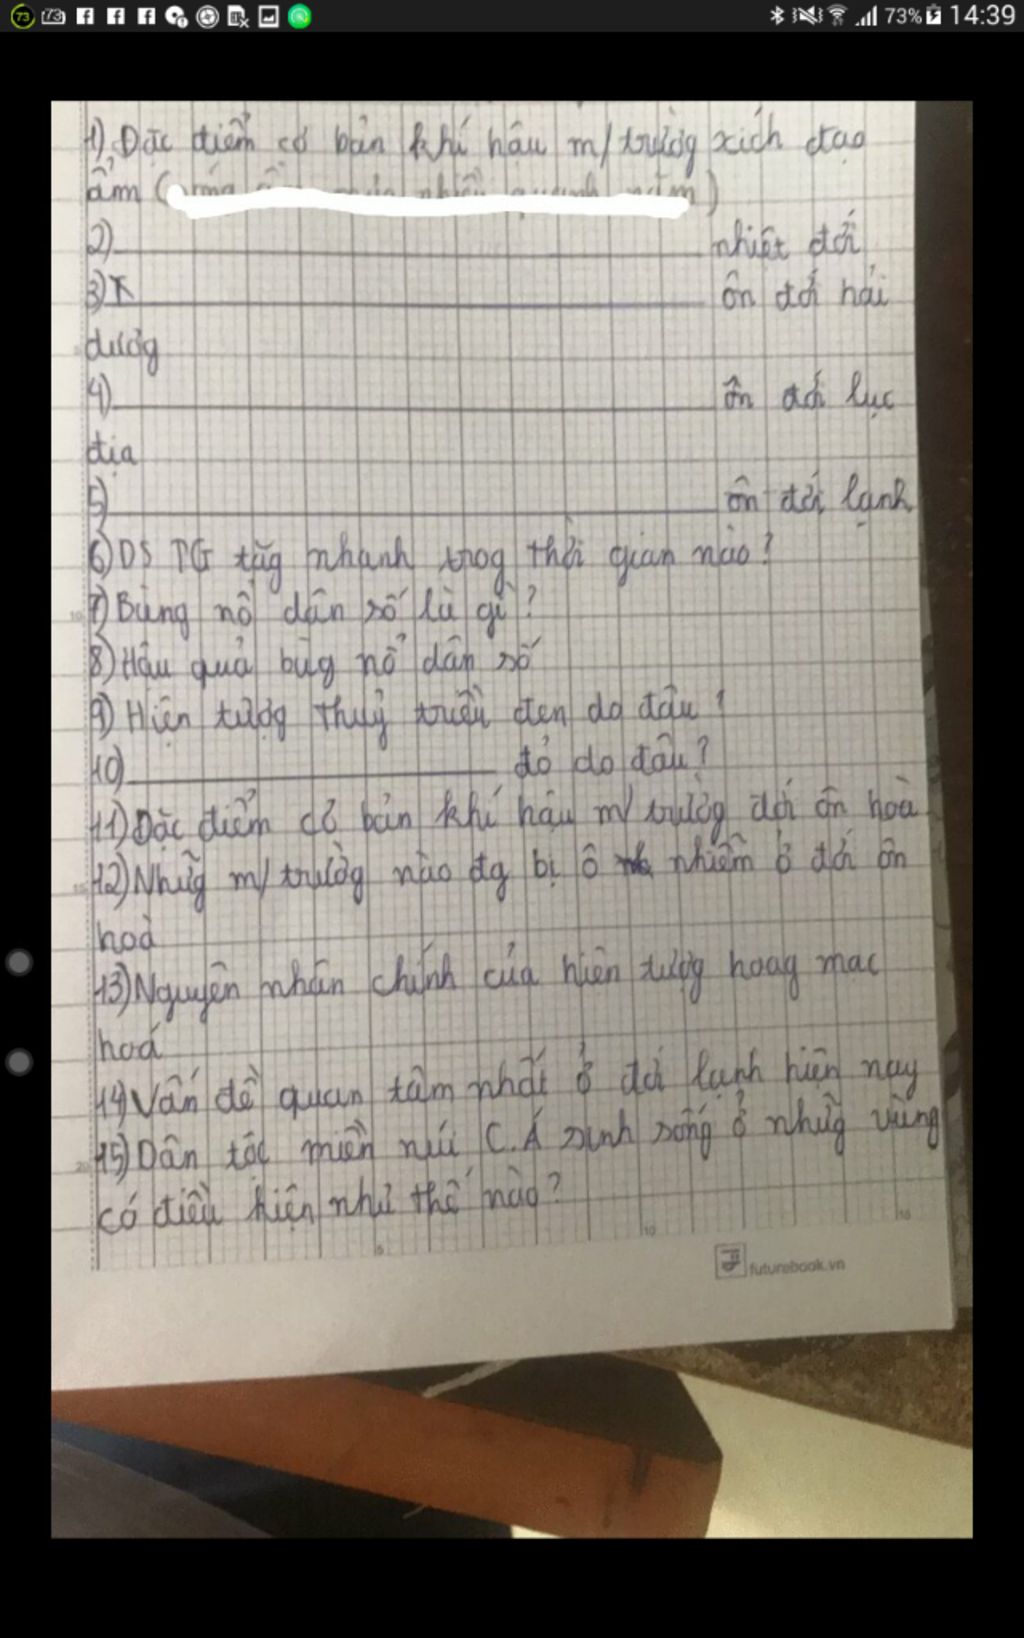 73 73 73% 14:39
1) Đặc điểm cơ bản khí hậu m/trường xích đạo
ẩm ( )
2) nhiệt đới
3) ôn đới hải
dương
4) ôn đới lục
địa
5) ôn đới lạnh
6) DS TG tăg nhanh trog thời gian nào?
7) Bùng nổ dân số là gì?
8) Hậu quả bùg nổ dân số
9) Hiện tượg thuỷ triều đen do đâu?
10) đỏ do đâu?
11) Đặc điểm cơ bản khí hậu m/trườg đới ôn hoà
12) Nhữg m/trườg nào đg bị ô nhiễm ở đới ôn
hoà
13) Nguyên nhân chính của hiện tượg hoag mạc
hoá
14) Vấn đề quan tâm nhất ở đới lạnh hiện nay
15) Dân tộc miền núi C.Á sinh sống ở nhữg vùng
có điều kiện như thế nào?
5 10 15
10
15
20
futurebook.vn